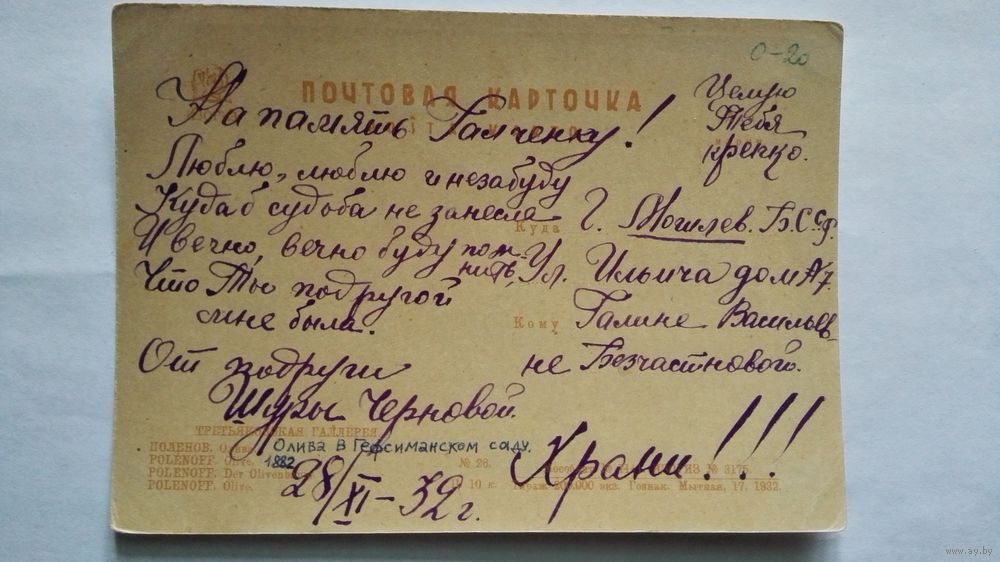 0-20
ПОЧТОВАЯ КАРТОЧКА
На память Галченку!
Целую
Тебя
крепко.
Люблю, люблю и незабуду
Куда б судьба не занесла
И вечно, вечно буду пом-
нить,
Что Ты подругой
мне была.
От подруги
Шуры Черновой.
Куда
Г. Могилев. Б.С.С.Р.
Ул. Ильича дом №7.
Кому
Галине Васильев-
не Безчастновой.
Храни!!!
ТРЕТЬЯКОВСКАЯ ГАЛЛЕРЕЯ
ПОЛЕНОВ.
Олива в Гефсиманском саду.
1882
POLENOFF. Olive.
POLENOFF. Der
POLENOFF. Olive.
№ 26.
Ц. 10 к.
ИЗ № 3175.
Тираж 200.000 экз. Гознак. Мытная, 17. 1932.
28/XI-32 г.
www.ay.by